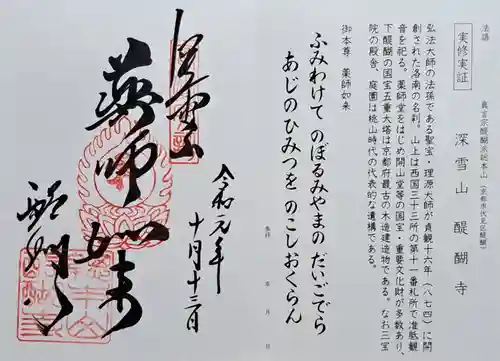 法語
実修実証
真言宗醍醐派総本山
(京都市伏見区醍醐)
深雪山 醍醐寺
弘法大師の法孫である聖宝・理源大師が貞観十六年(八七四)に開
創された洛南の名刹。山上は西国三十三所の第十一番札所で准胝観
音を祀る。薬師堂をはじめ開山堂等の国宝・重要文化財が多数あり、
下醍醐の国宝五重大塔は京都府最古の木造建造物である。なお三宝
院の殿舎、庭園は桃山時代の代表的な遺構である。
御本尊 薬師如来
ふみわけて のぼるみやまの だいごでら
あじのひみつを のこしおくらん
奉拝 年 月 日
令和元年
十月十三日
深雪山
薬師如来
醍醐寺